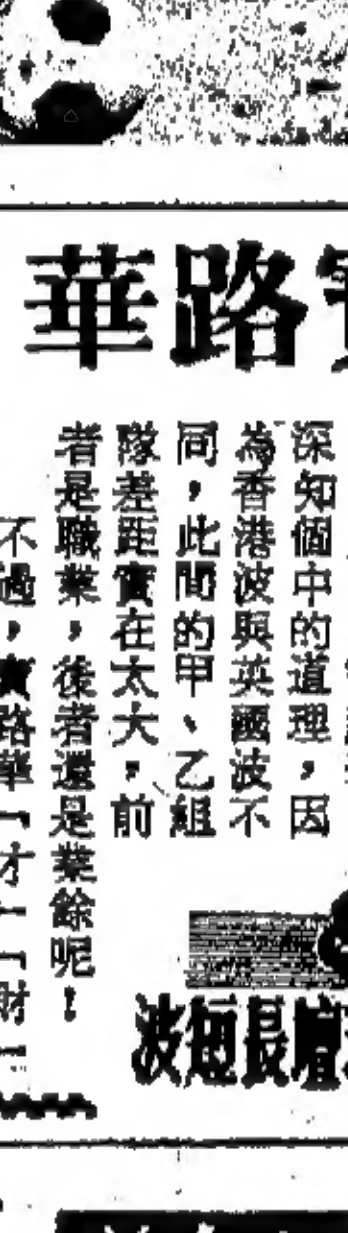 華路寶
深知個中的道理，因
為香港波與英國波不
同，此間的甲、乙組
隊差距實在太大，前
者是職業，後者還是業餘呢！
不過，寶路華「才」「財」
波短長壇